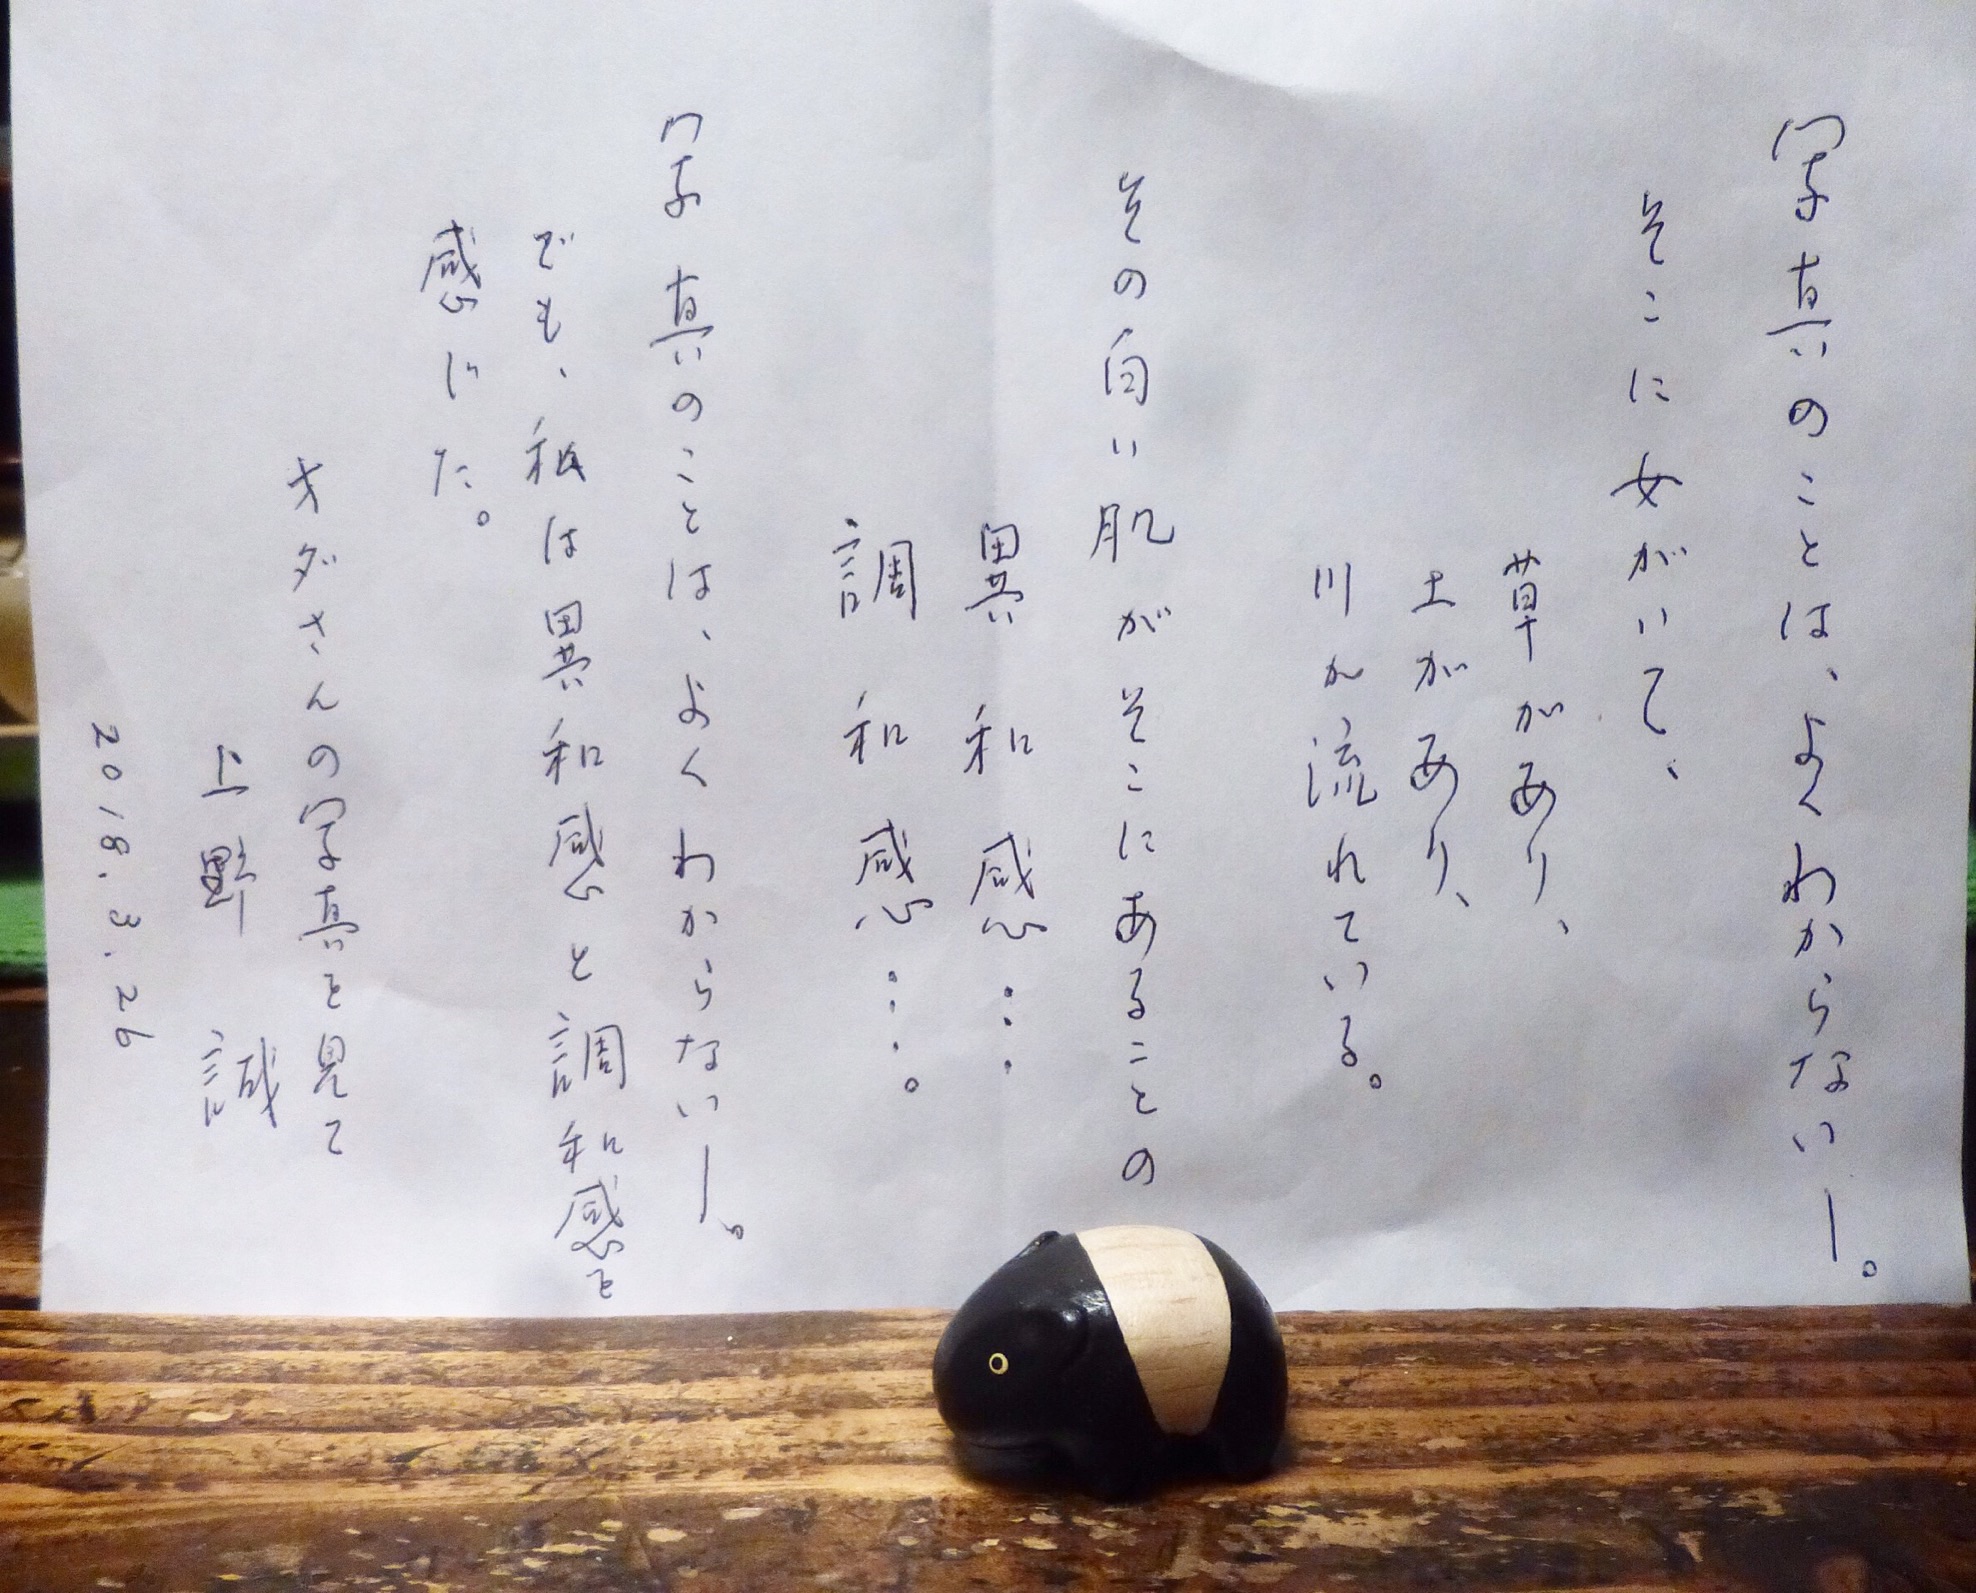 写真のことは、よくわからない―。
そこに女がいて、
草があり、
土があり、
川が流れている。
その白い肌がそこにあることの
異和感……
調和感……。
写真のことは、よくわからない―。
でも、私は異和感と調和感を
感じた。
オダさんの写真を見て
上野 誠
2018.3.26